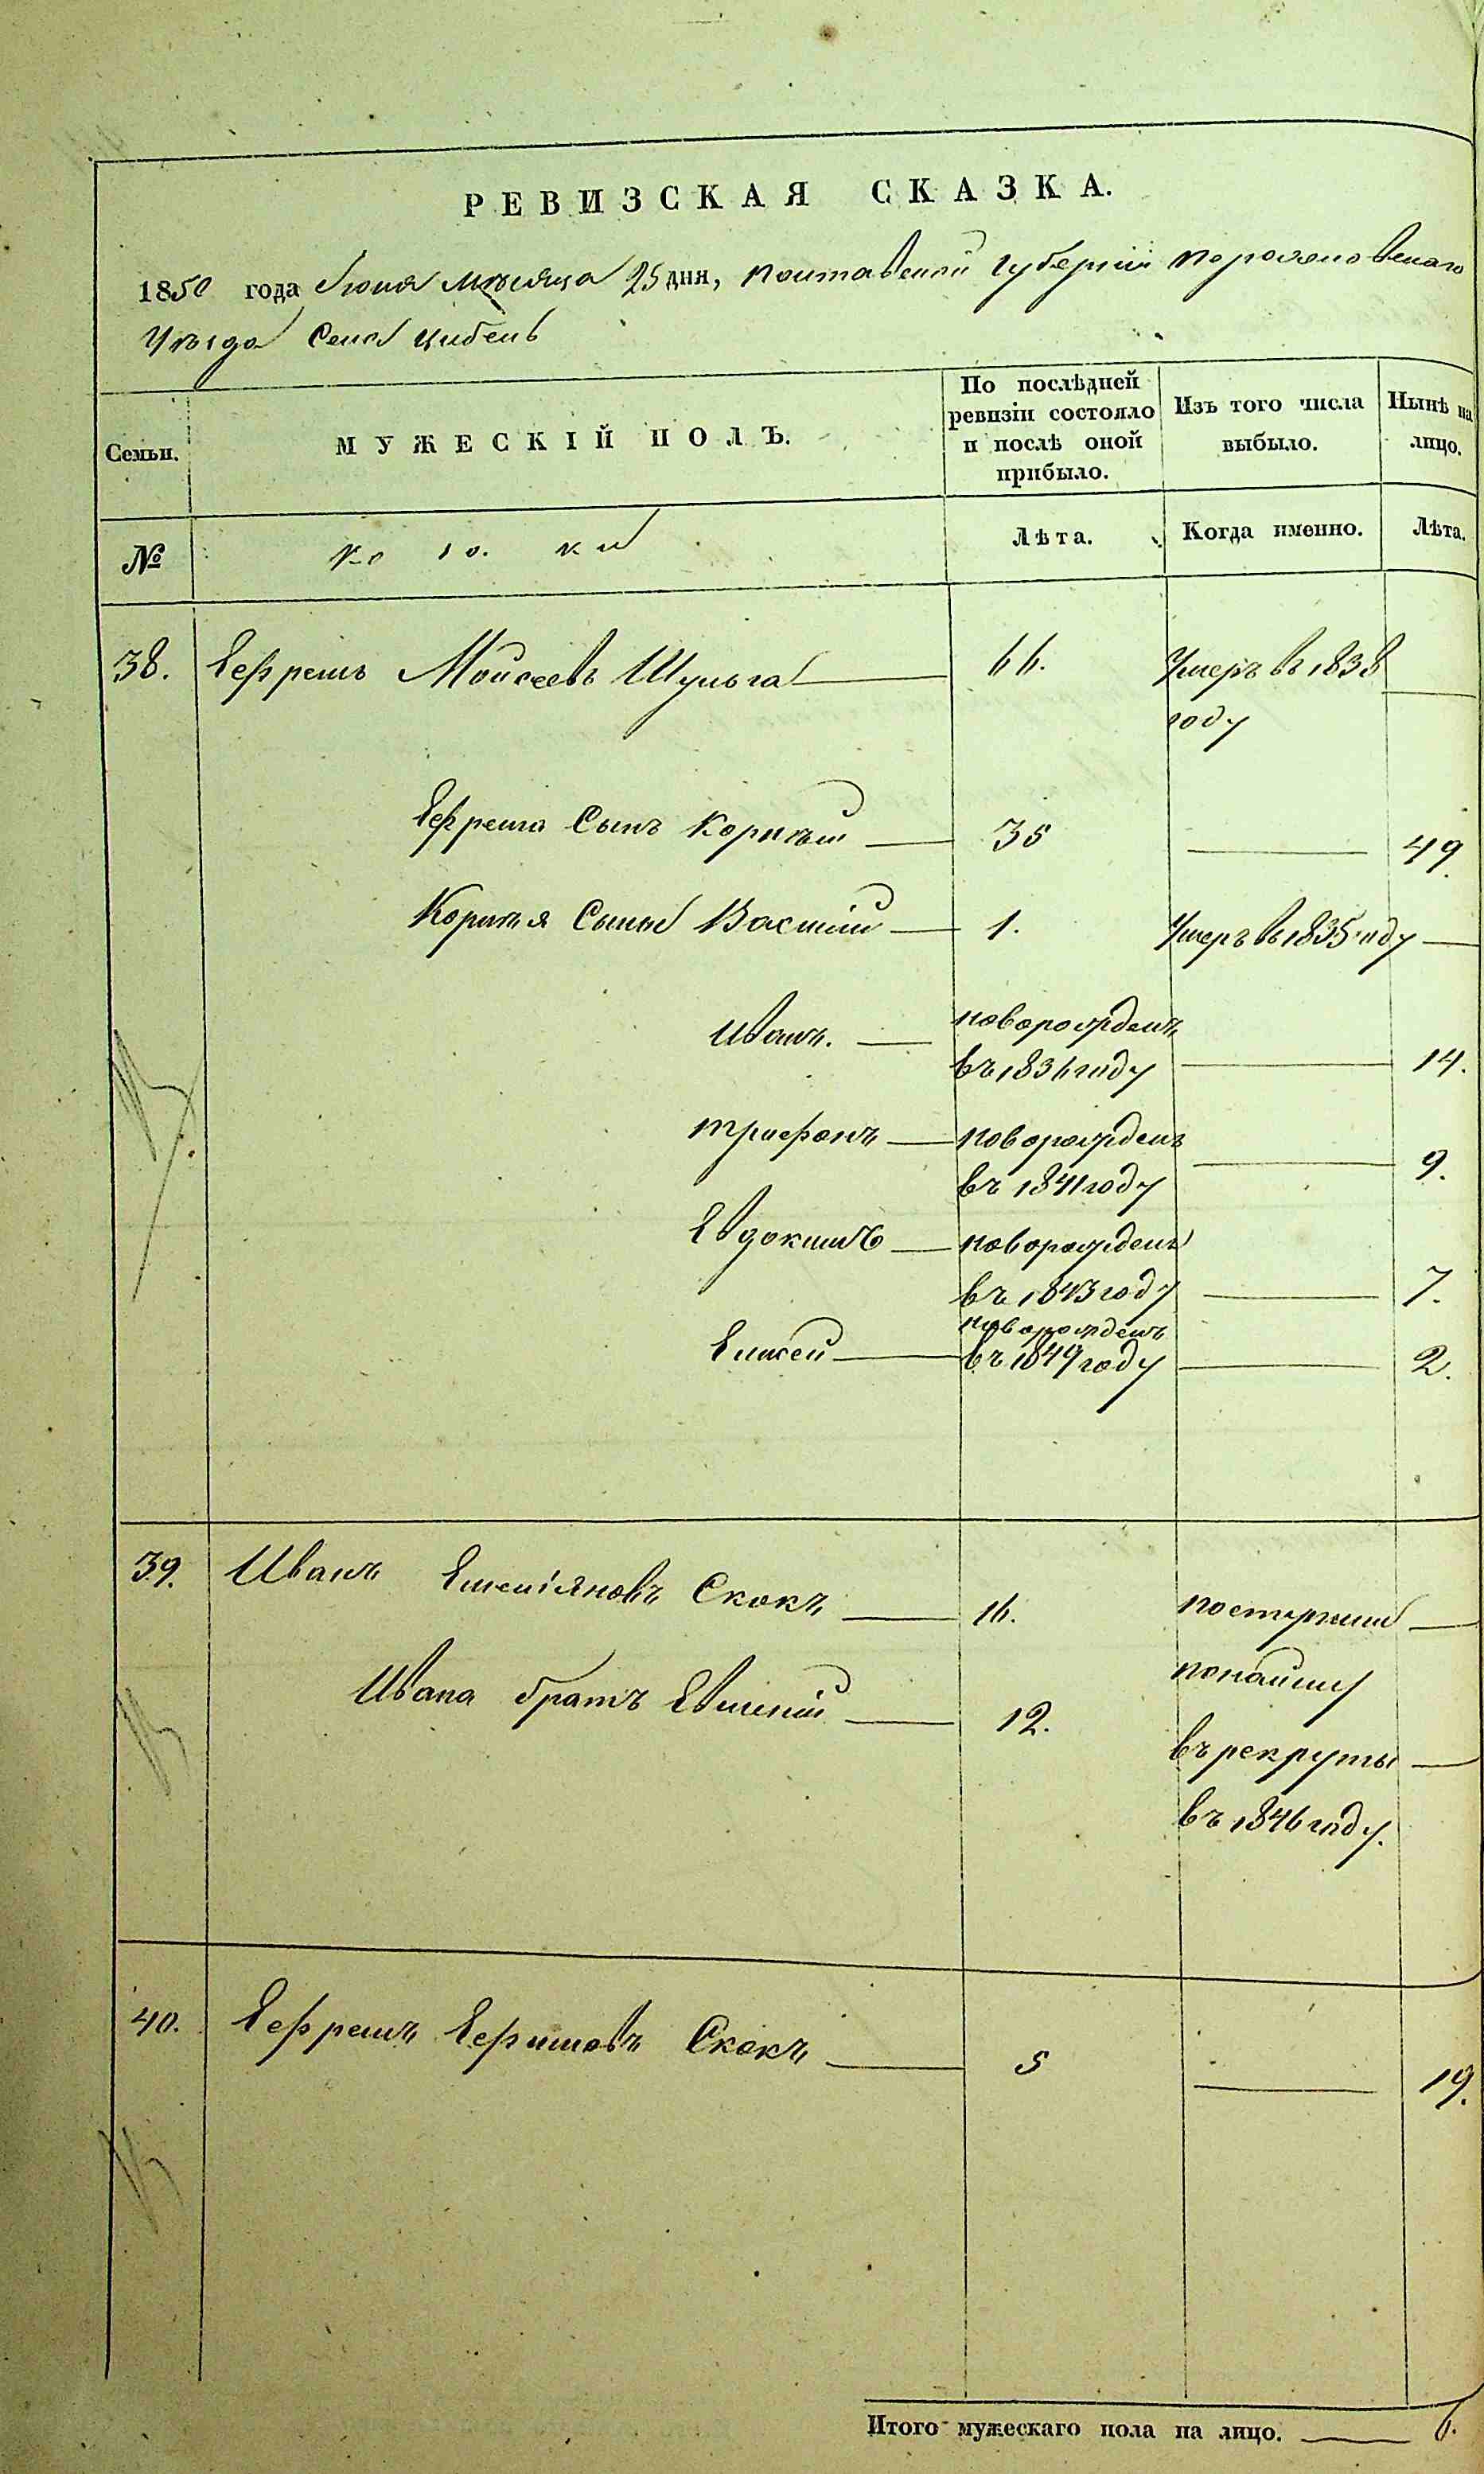 РЕВИЗСКАЯ СКАЗКА.
1850 года Июня мѣсяца 25 дня, Полтавской губерніи Переяславскаго
Уѣзда Села Цибель
Семьи.
МУЖЕСКІЙ ПОЛЪ.
По послѣдней ревизіи состояло и послѣ оной прибыло.
Изъ того числа выбыло.
Нынѣ на лицо.
№
Лѣта.
Когда именно.
Лѣта.
38. Ефремъ Моисеевъ Шульга 66. Умеръ въ 1838
году
Ефрема Сынъ Корнѣй 35 49.
Корнѣя Сыны Василій 1. Умеръ въ 1835 году
Иванъ. новорожденъ
въ 1836 году 14.
Трифонъ новорожденъ
въ 1841 году 9.
Евдокимъ новорожденъ
въ 1843 году 7.
Елисей новорожденъ
въ 1849 году 2.
39. Иванъ Емеліяновъ Скокъ 16. поступили
Ивана братъ Евменій 12. понайму
въ рекруты
въ 1846 году.
40. Ефремъ Ефимовъ Скокъ 5 19.
Итого мужескаго пола на лицо. 6.